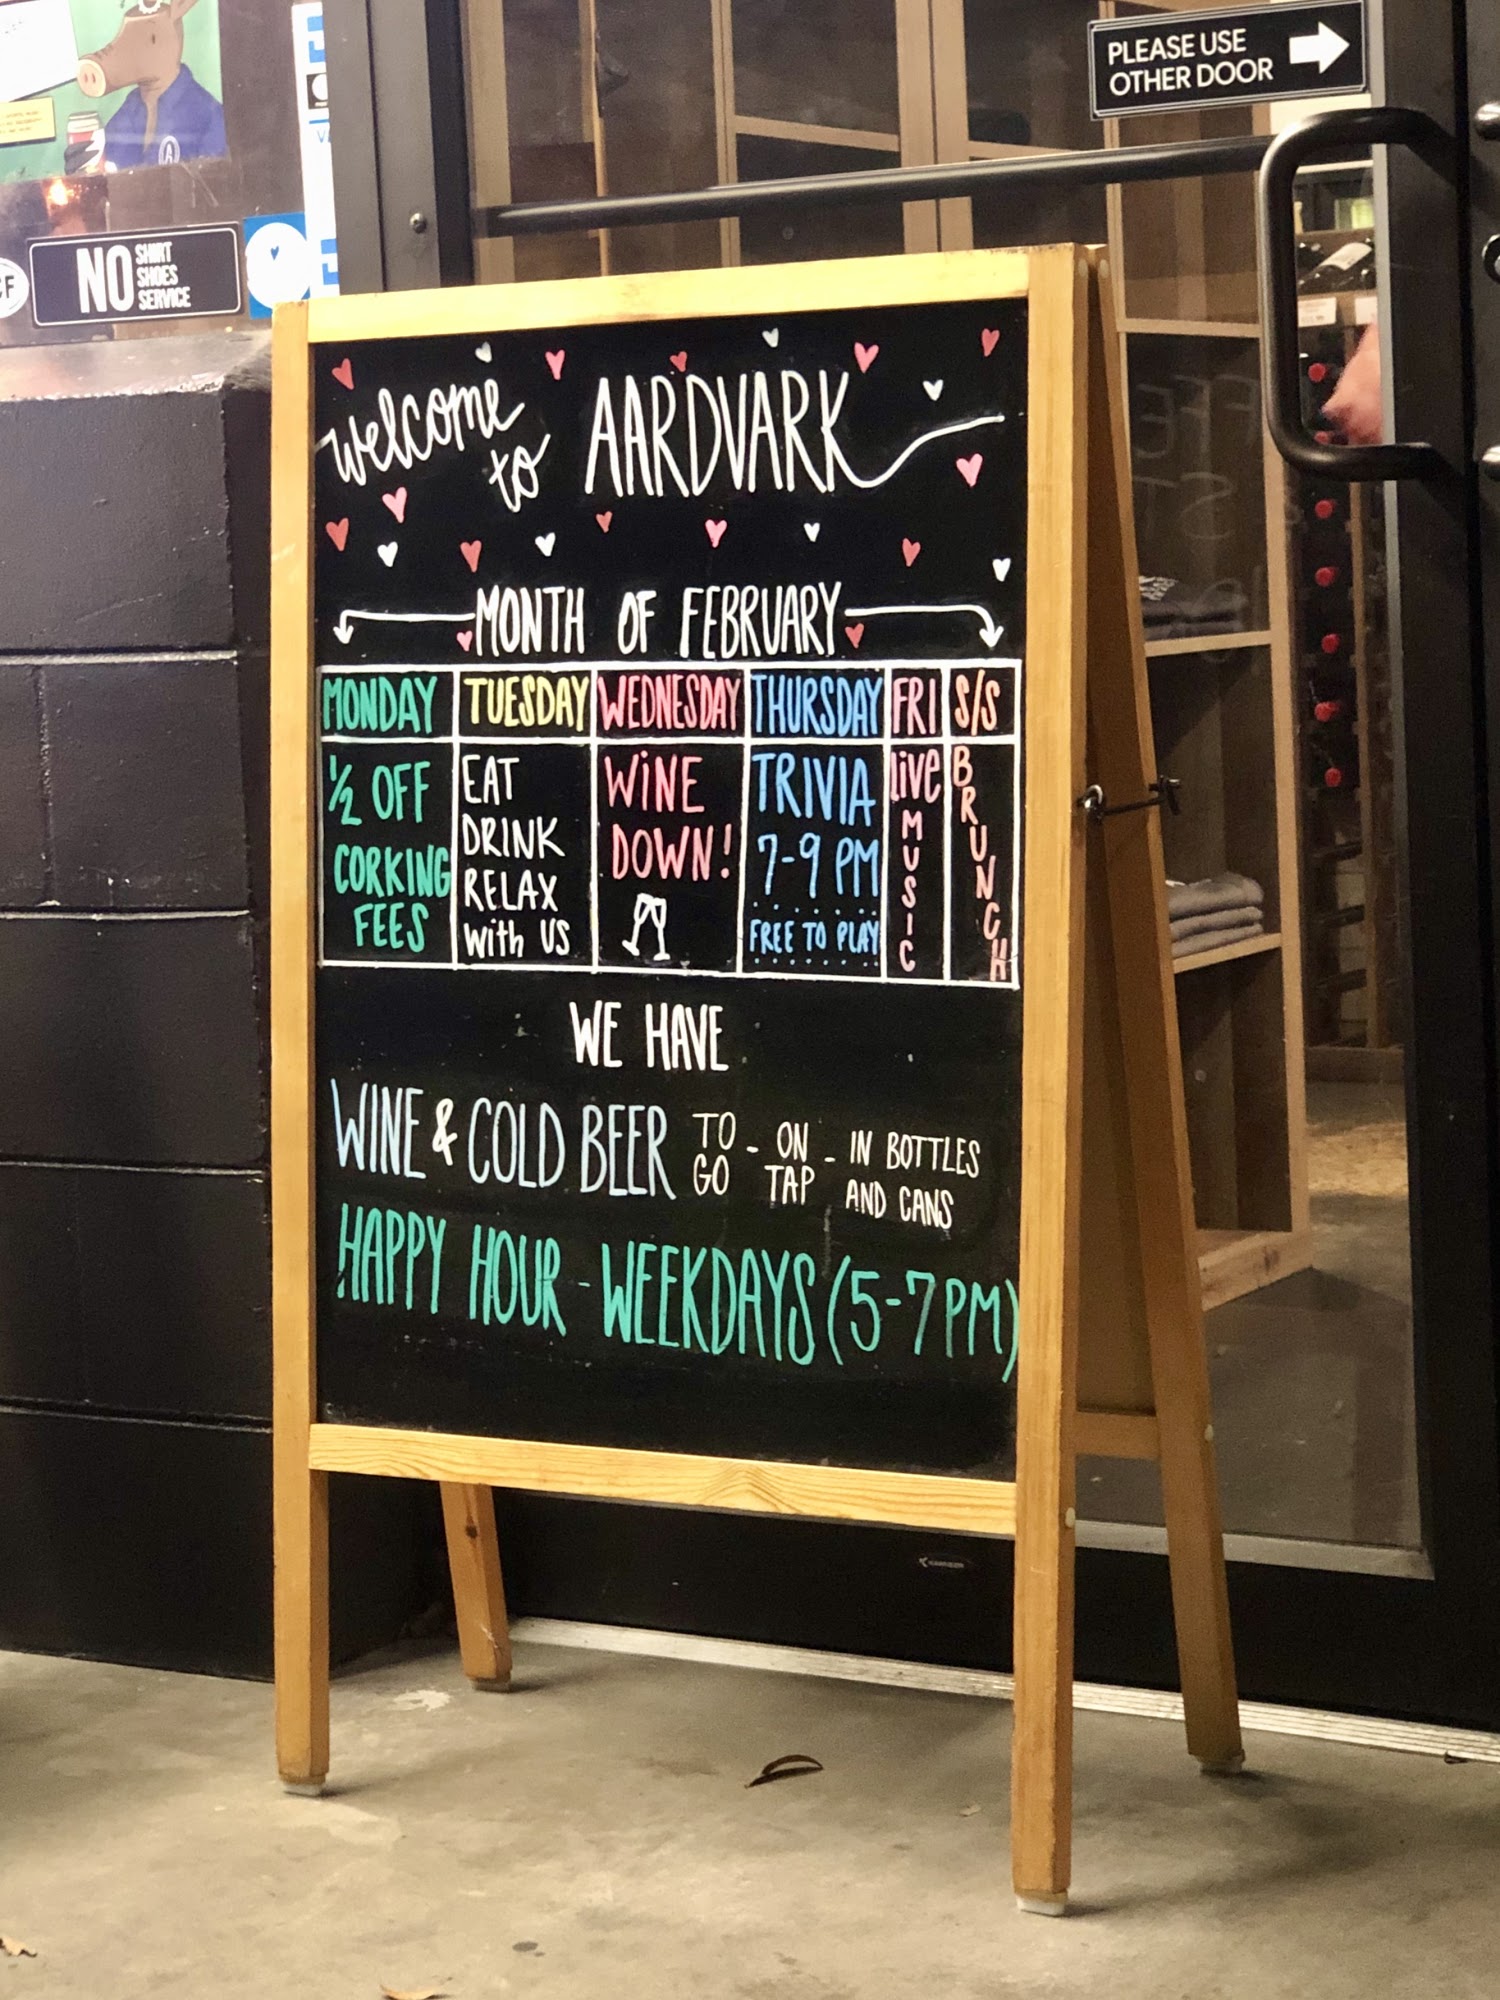 PLEASE USE
OTHER DOOR
NO SHIRT
SHOES
SERVICE
welcome to AARDVARK
MONTH OF FEBRUARY
MONDAY TUESDAY WEDNESDAY THURSDAY FRI S/S
½ OFF
CORKING
FEES
EAT
DRINK
RELAX
with US
WiNE
DOWN!
TRIVIA
7-9 PM
FREE TO PLAY
live
MUSIC
BRUNCH
WE HAVE
WINE & COLD BEER TO GO - ON TAP - IN BOTTLES AND CANS
HAPPY HOUR - WEEKDAYS (5-7PM)